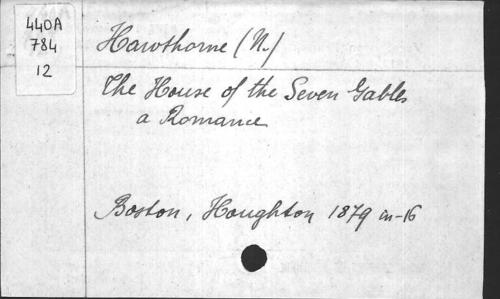 440A
784
12
Hawthorne (N.)
The House of the Seven Gables
a Romance
Boston, Houghton 1879 in-16